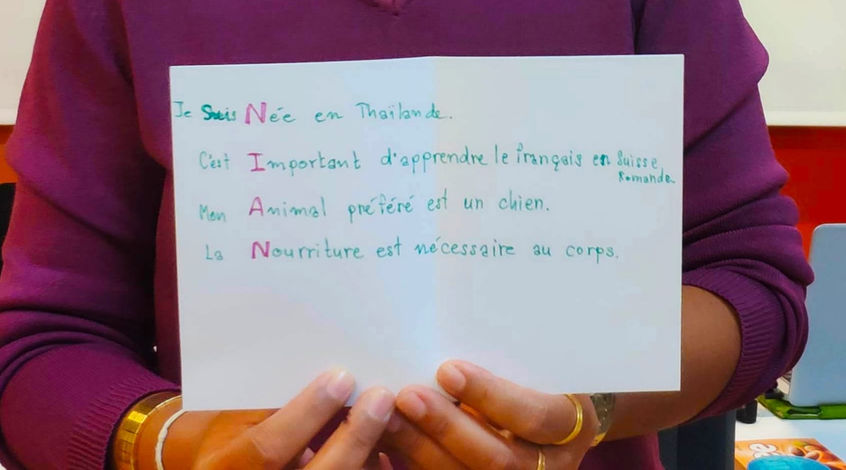 Je Suis Née en Thaïlande.
C'est Important d'apprendre le français en Suisse
Romande.
Mon Animal préféré est un chien.
La Nourriture est nécessaire au corps.